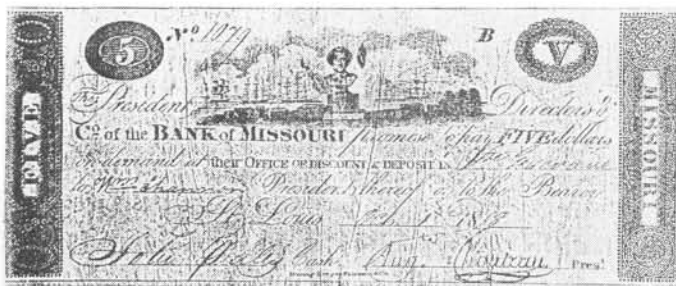 5 No 1079 B V
FIVE
The President Directors &
Co. of the BANK of MISSOURI promise to pay FIVE dollars
on demand at their OFFICE OF DISCOUNT & DEPOSIT in
to Wm Shannon President thereof or to the Bearer
St. Louis 1st 1819
Cash. Aug. Chouteau Prest.
MISSOURI